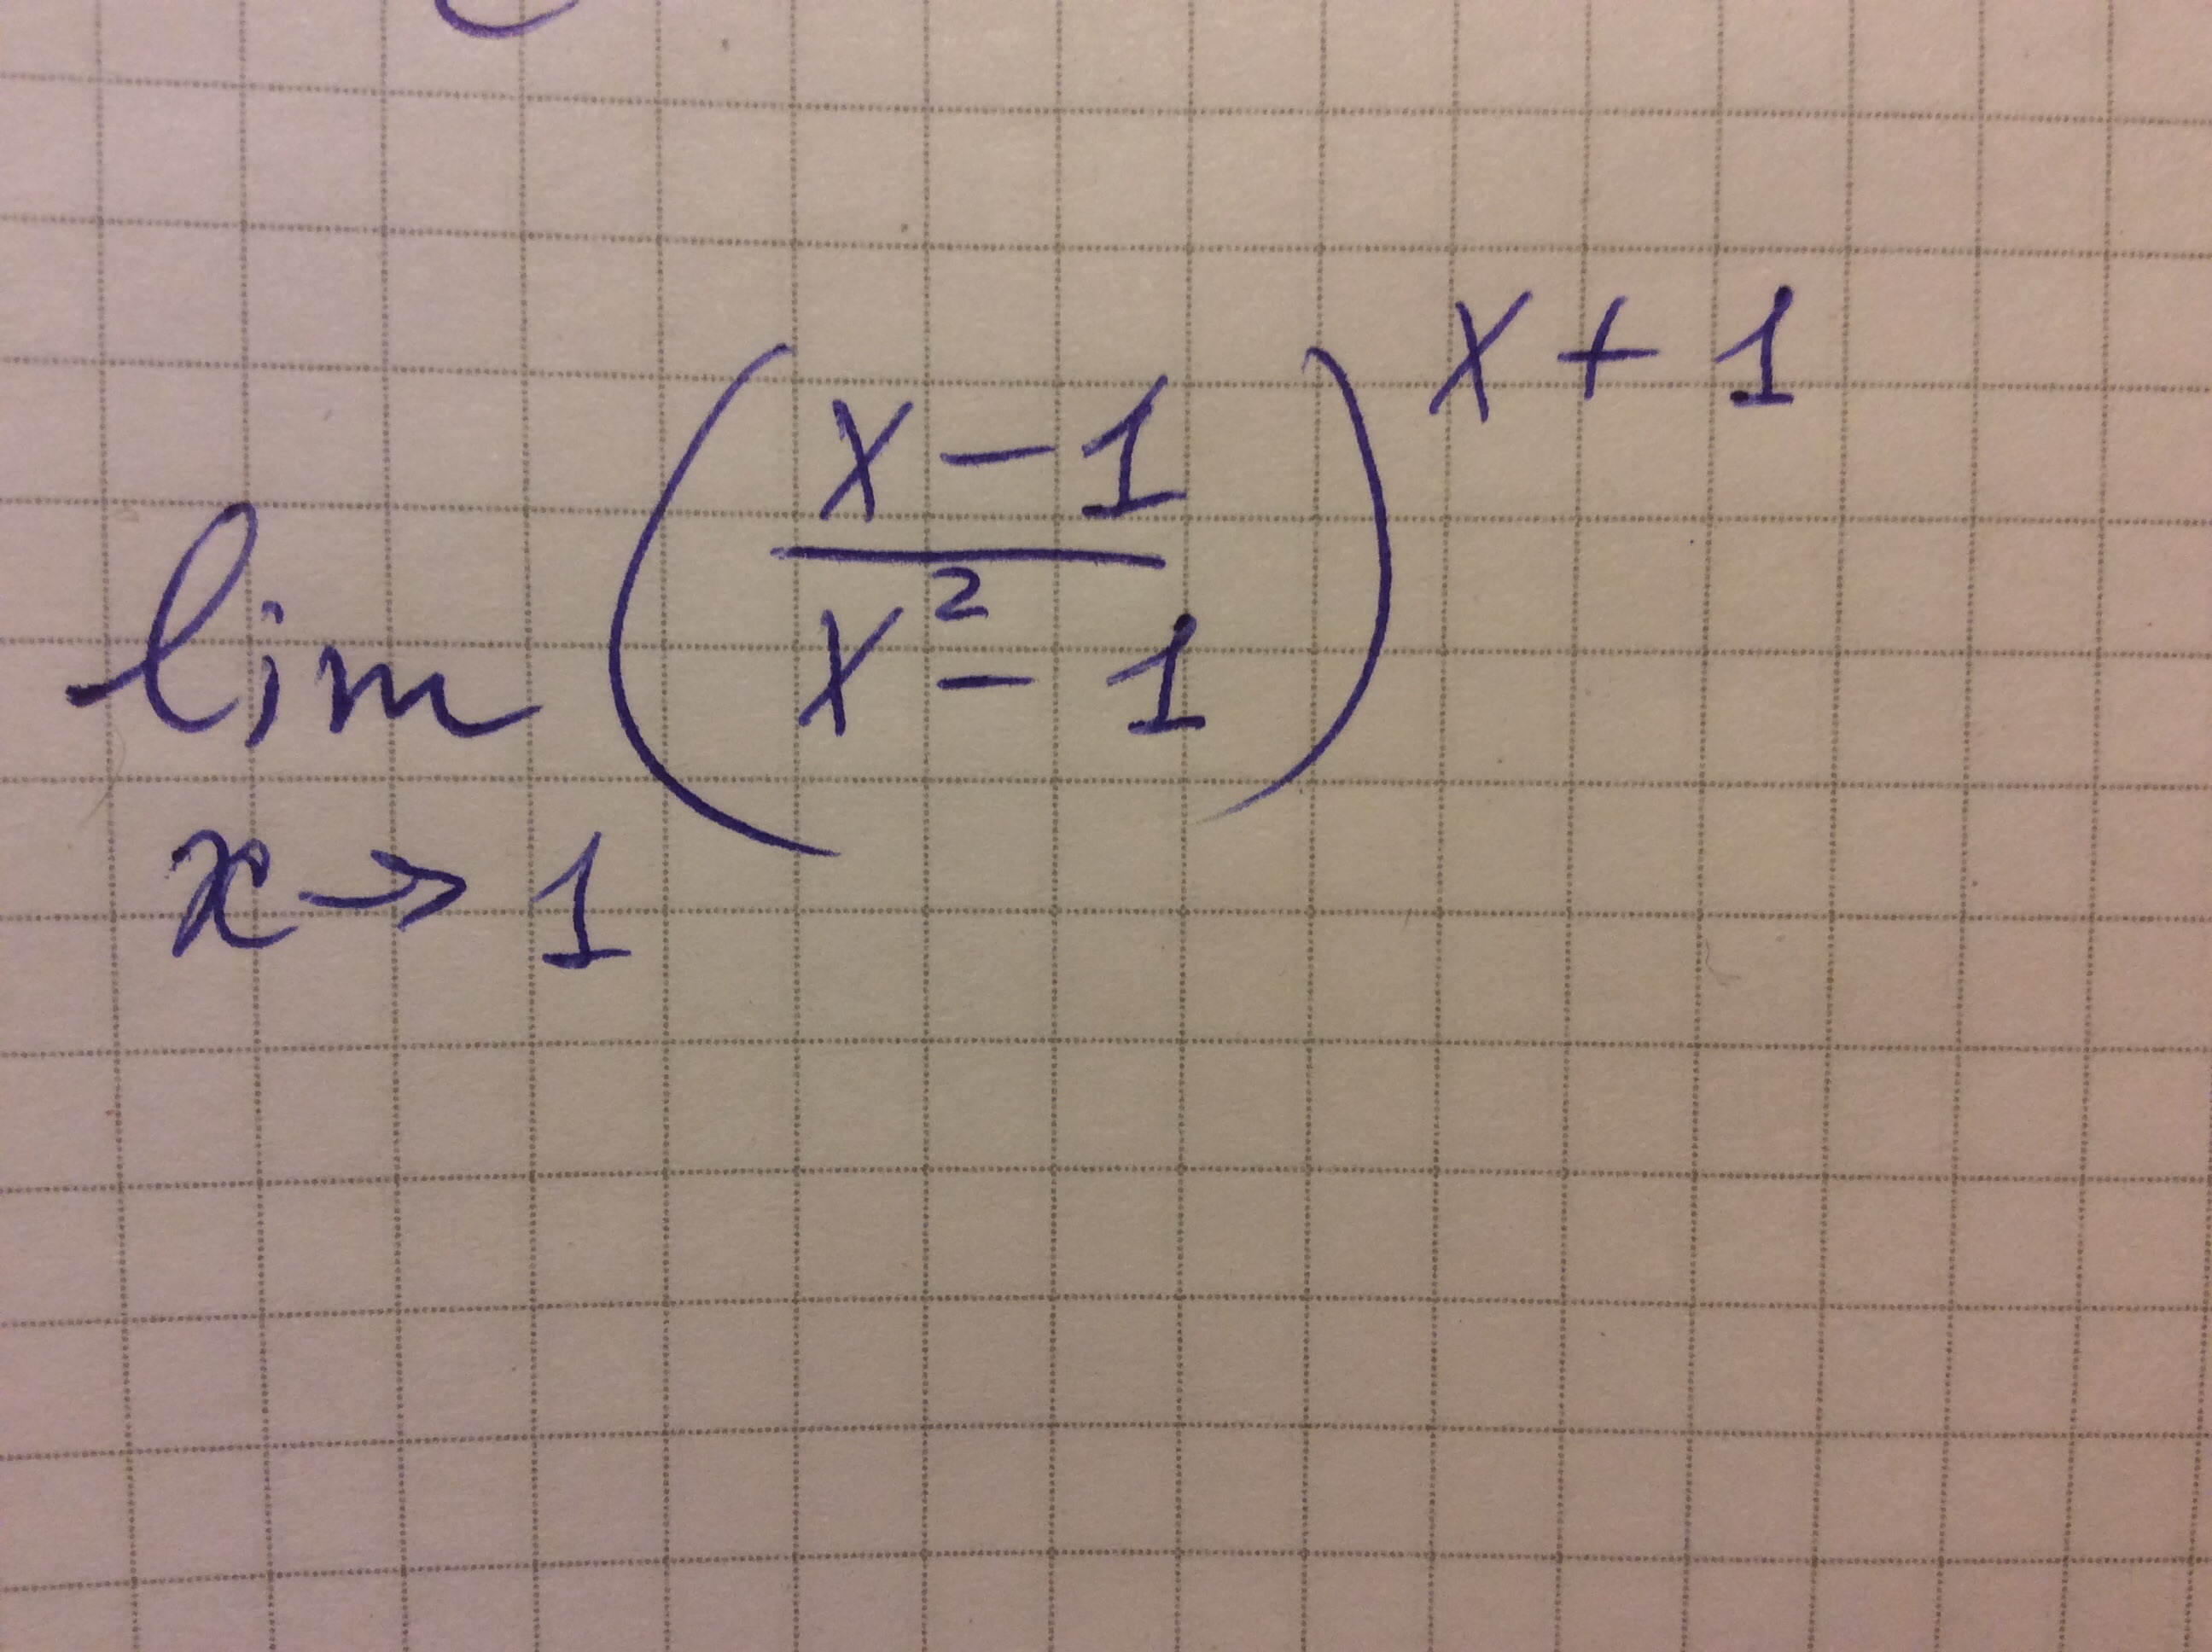 lim ( (x-1)/(x²-1) )^(x+1)
x→1